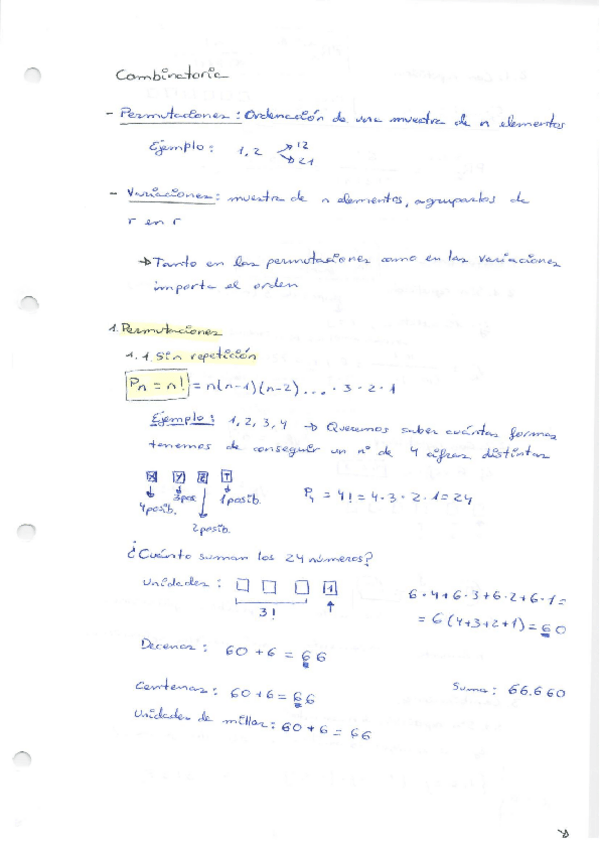 Combinatoria
- Permutaciones: Ordenación de una muestra de n elementos
Ejemplo: 1, 2 → 12
→ 21
- Variaciones: muestra de n elementos, agruparlos de
r en r
→ Tanto en las permutaciones como en las variaciones
importa el orden
1. Permutaciones
1.1. Sin repetición
Pn = n! = n(n-1)(n-2) ... · 3 · 2 · 1
Ejemplo: 1, 2, 3, 4 → Queremos saber cuántas formas
tenemos de conseguir un nº de 4 cifras distintas
X Y Z T
4posib. 3pos 2posib. 1posib.
P4 = 4! = 4·3·2·1 = 24
¿Cuánto suman los 24 números?
Unidades: □ □ □ 1
3!
6·4+6·3+6·2+6·1=
= 6(4+3+2+1) = 60
Decenas: 60 + 6 = 66
Centenas: 60+6 = 66
Suma: 66.660
Unidades de millar: 60 + 6 = 66